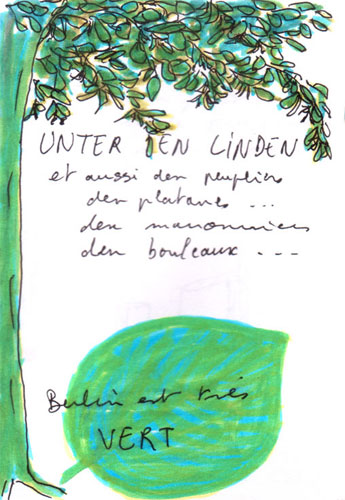 UNTER DEN LINDEN
et aussi den peupliers
den platanes ...
den marronniers
den bouleaux ...
Berlin est très
VERT